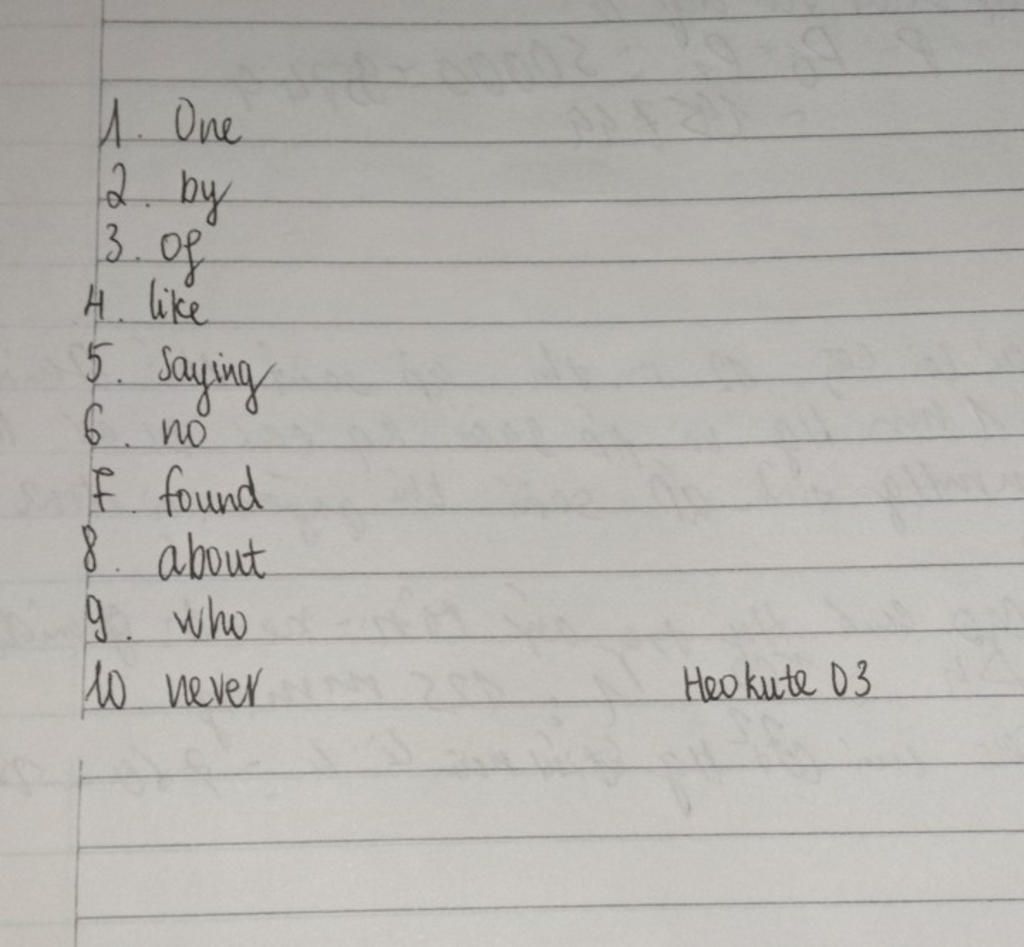 1. One
2. by
3. of
4. like
5. saying
6. no
7. found
8. about
9. who
10 never Heokute 03